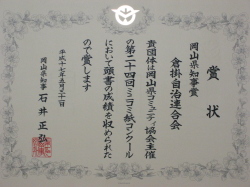 賞状
岡山県知事賞
倉掛自治連合会
貴団体は岡山県コミュニティ協会主催
の第二十四回ミニコミ紙コンクール
において頭書の成績を収められた
ので賞します
平成十六年五月三十一日
岡山県知事 石井正弘